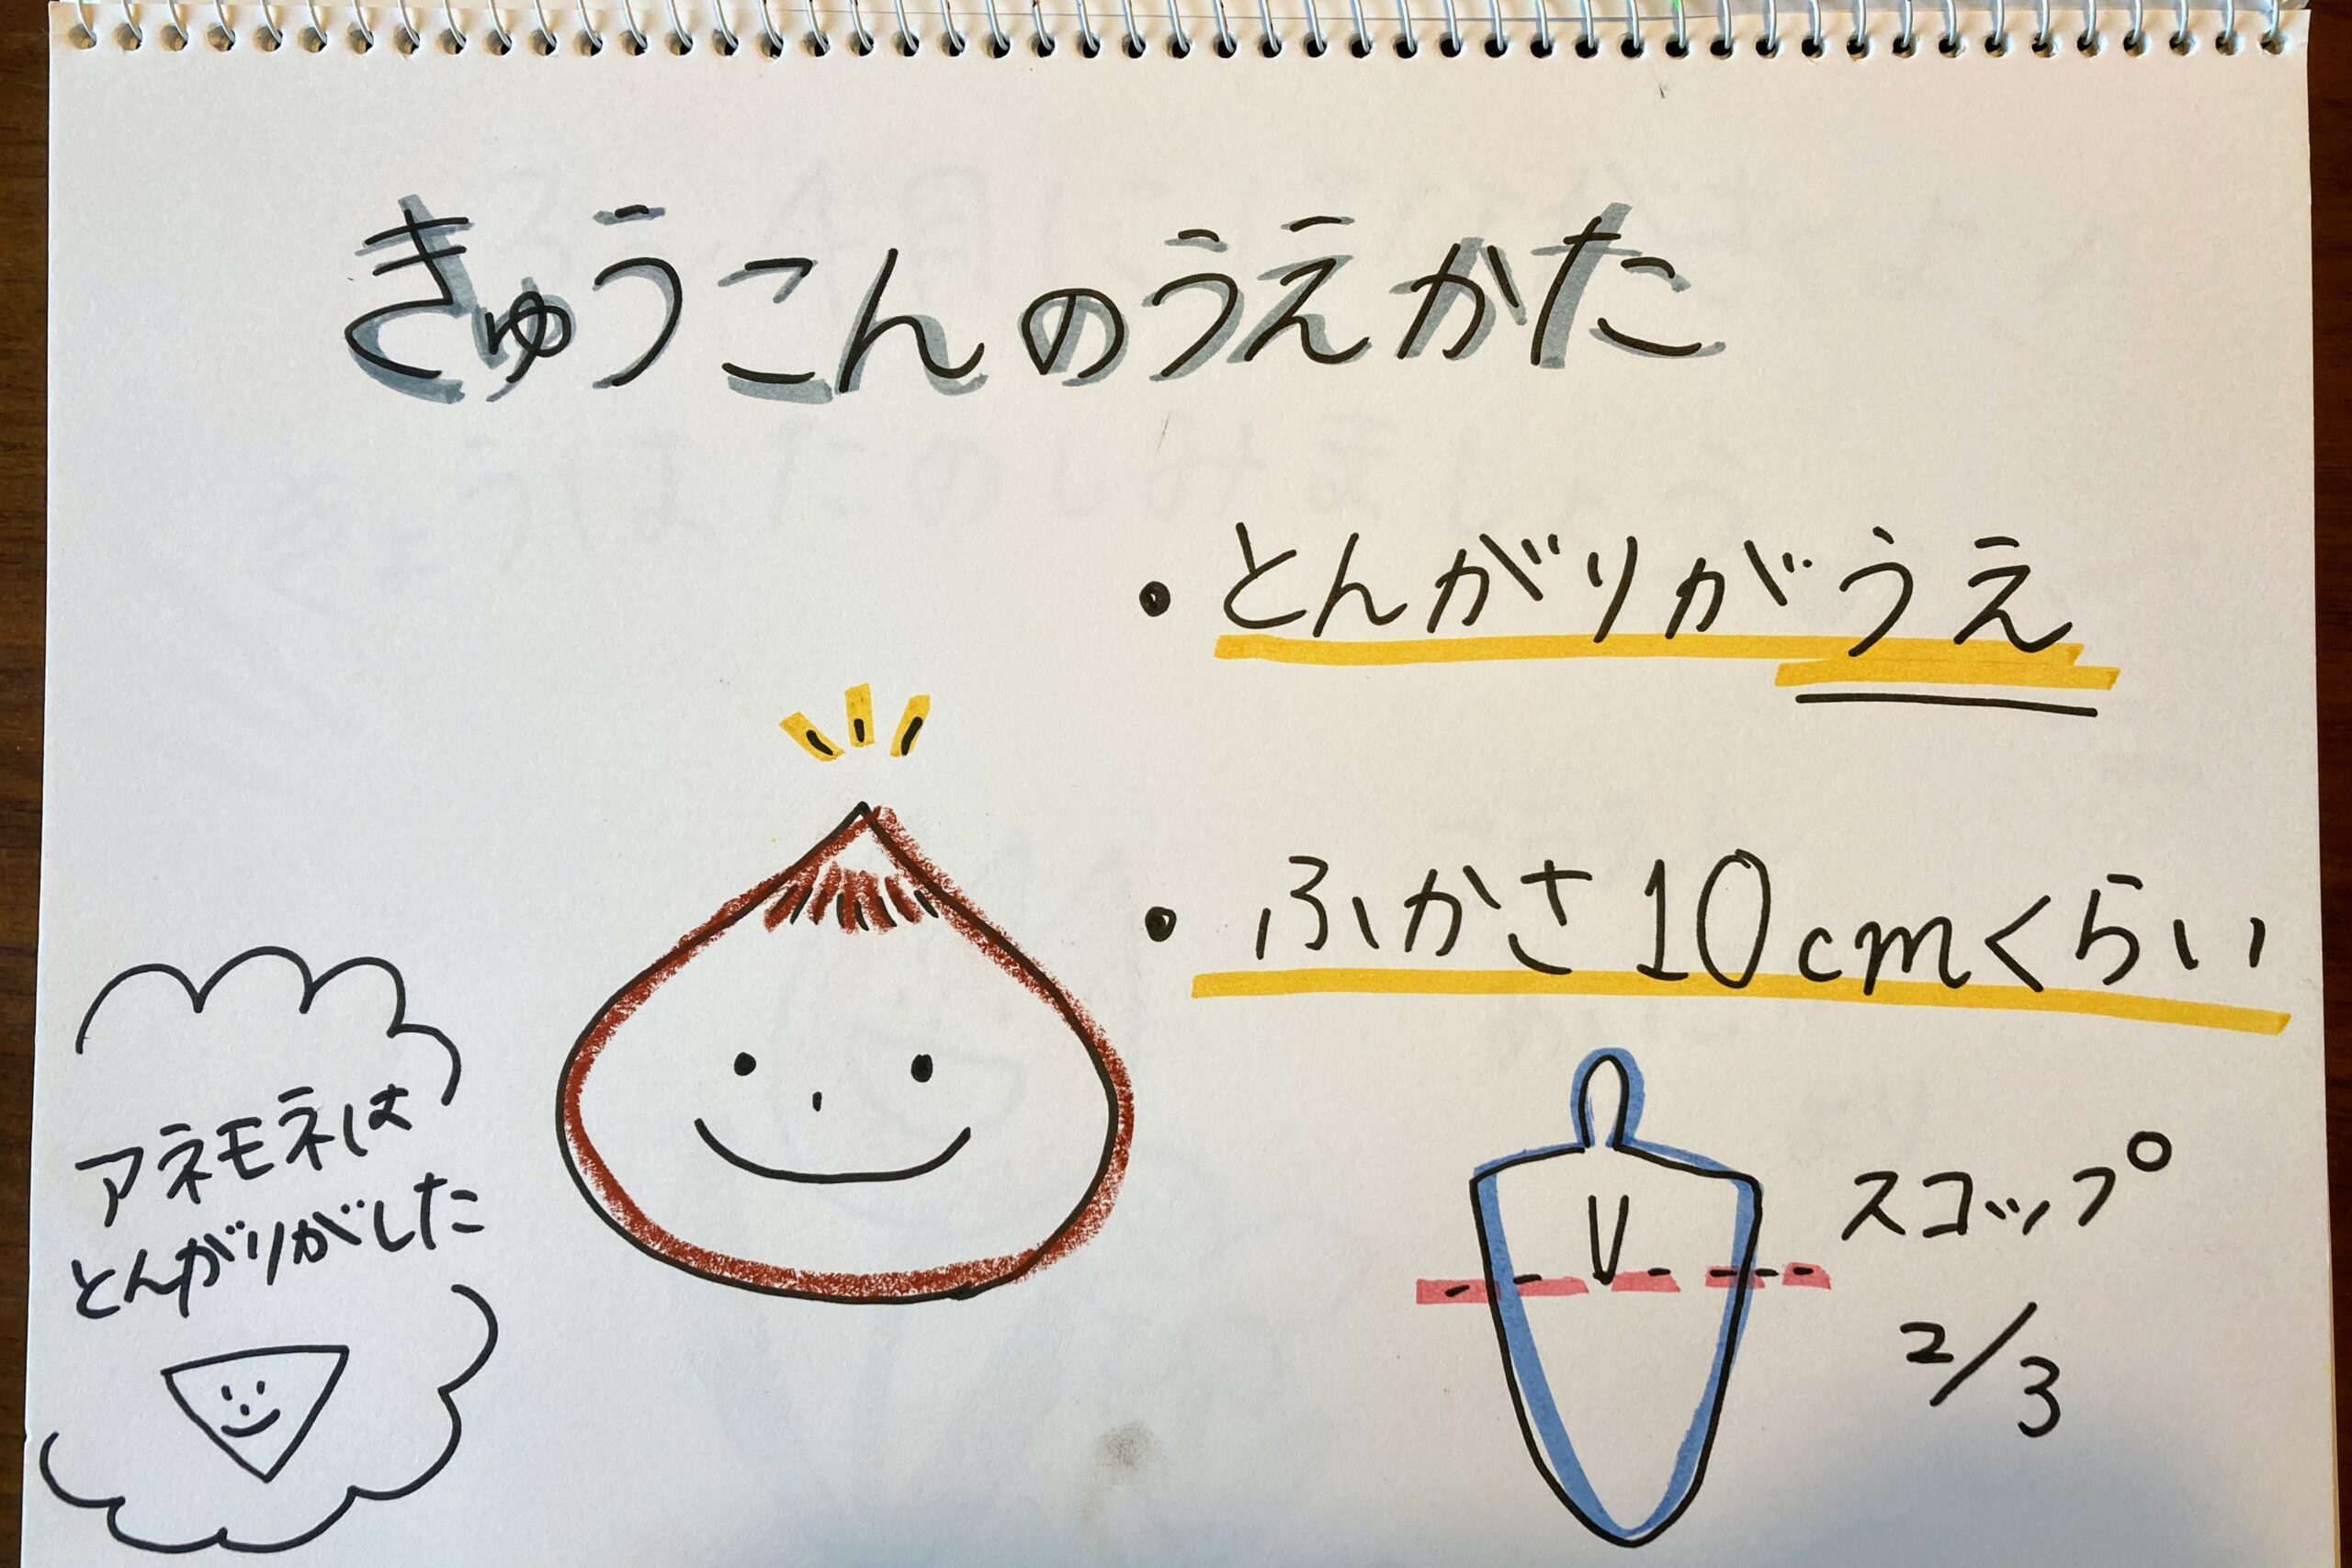 きゅうこんのうえかた
・とんがりがうえ
・ふかさ10cmくらい
スコップ
2/3
アネモネは
とんがりがした